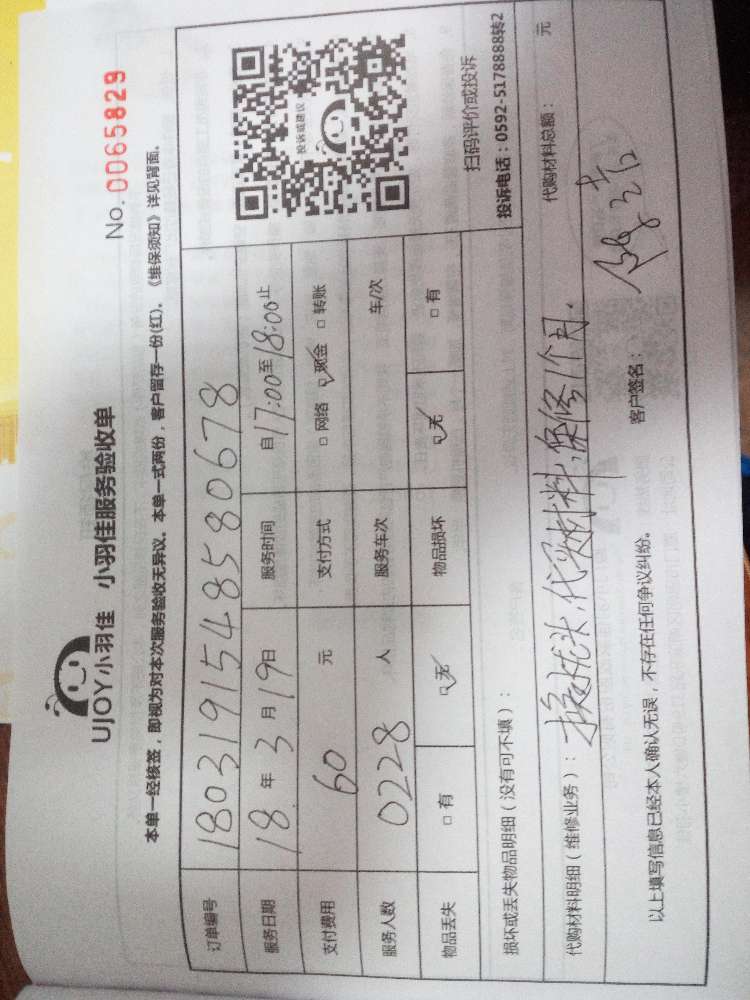 UJOY小羽佳 小羽佳服务验收单
No. 0065829
本单一经核签，即视为对本次服务验收无异议。本单一式两份，客户留存一份(红)。《维保须知》详见背面。
订单编号 180319154858580678
服务日期 18 年 3 月 19 日 服务时间 自 17:00 至 18:00 止
支付费用 60 元 支付方式 □ 网络 ☑ 现金 □ 转账
服务人数 0228 人 服务车次 车/次
物品丢失 □ 有 ☑ 无 物品损坏 ☑ 无 □ 有
投诉或建议
扫码评价或投诉
投诉电话：0592-5178888转2
损坏或丢失物品明细（没有可不填）：
代购材料明细（维修业务）：换龙头,代买材料,保修1个月. 代购材料总额： 元
以上填写信息已经本人确认无误，不存在任何争议纠纷。 客户签名：